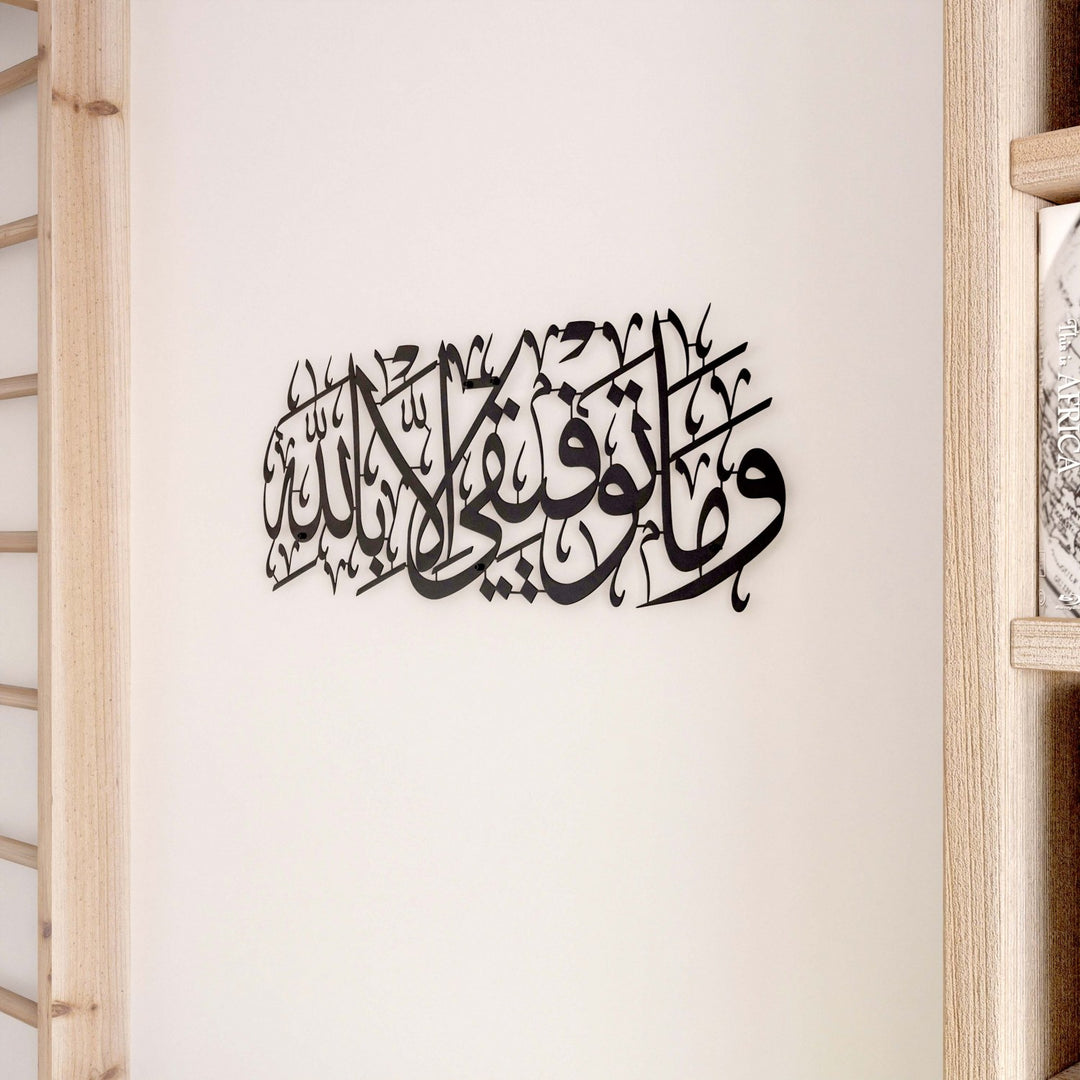 وَمَا تَوْفِيقِي إِلَّا بِاللَّهِ
This is AFRICA